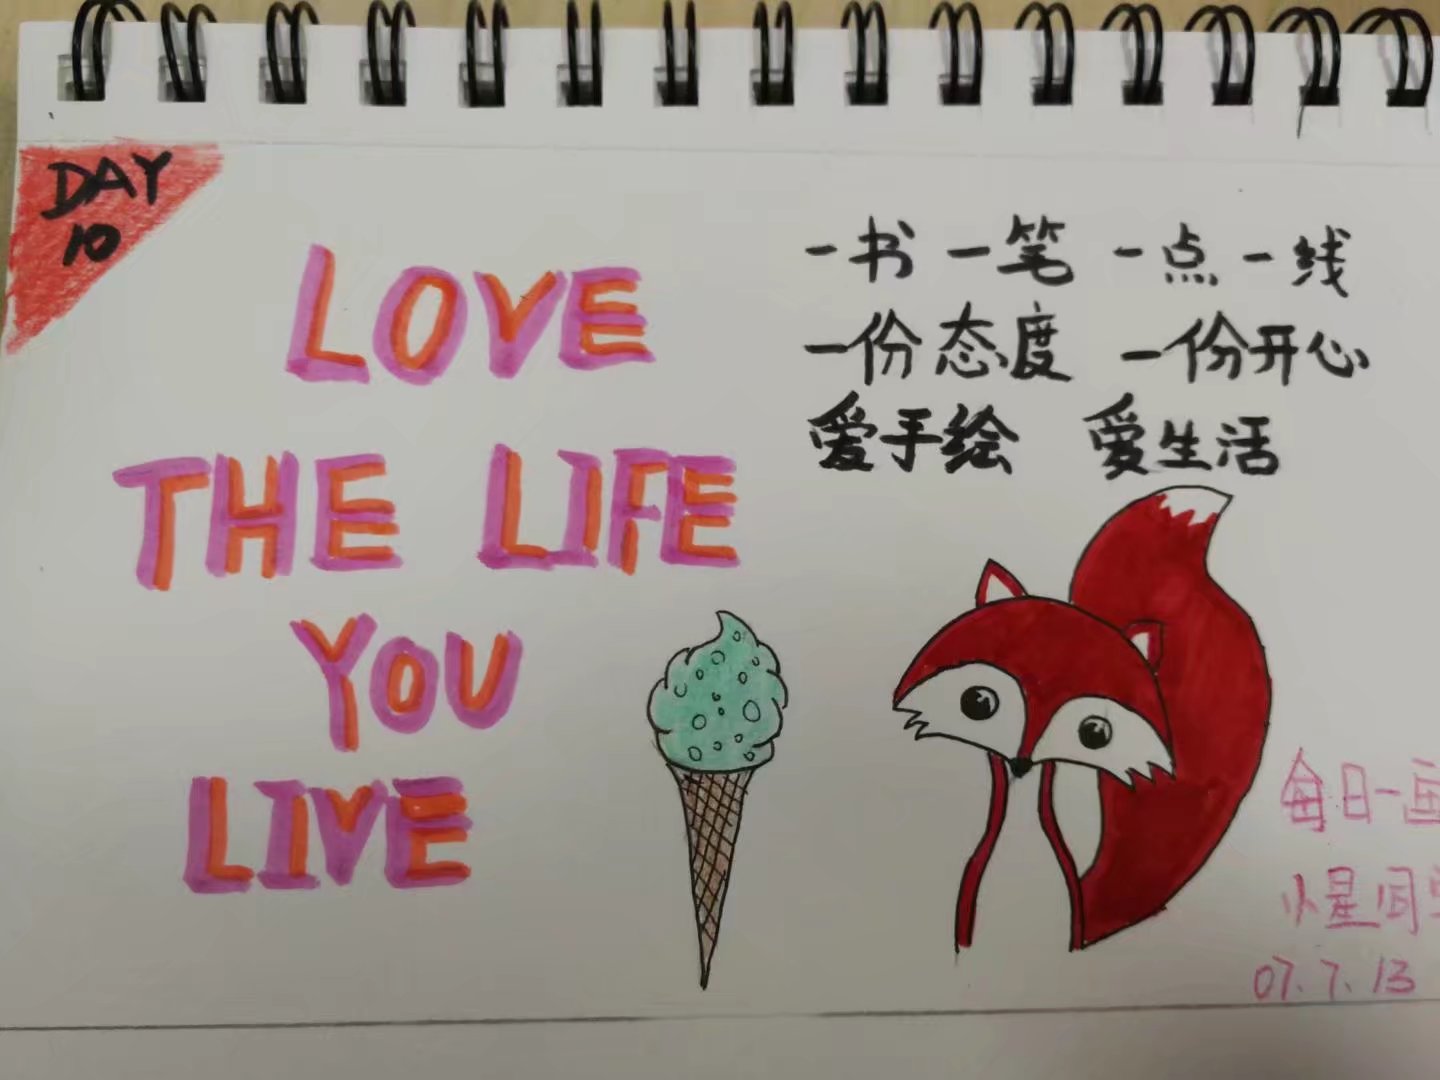 DAY
10
LOVE
THE LIFE
YOU
LIVE
一书 一笔 一点 一线
一份态度 一份开心
爱手绘 爱生活
每日一画
小星同学
07.7.13